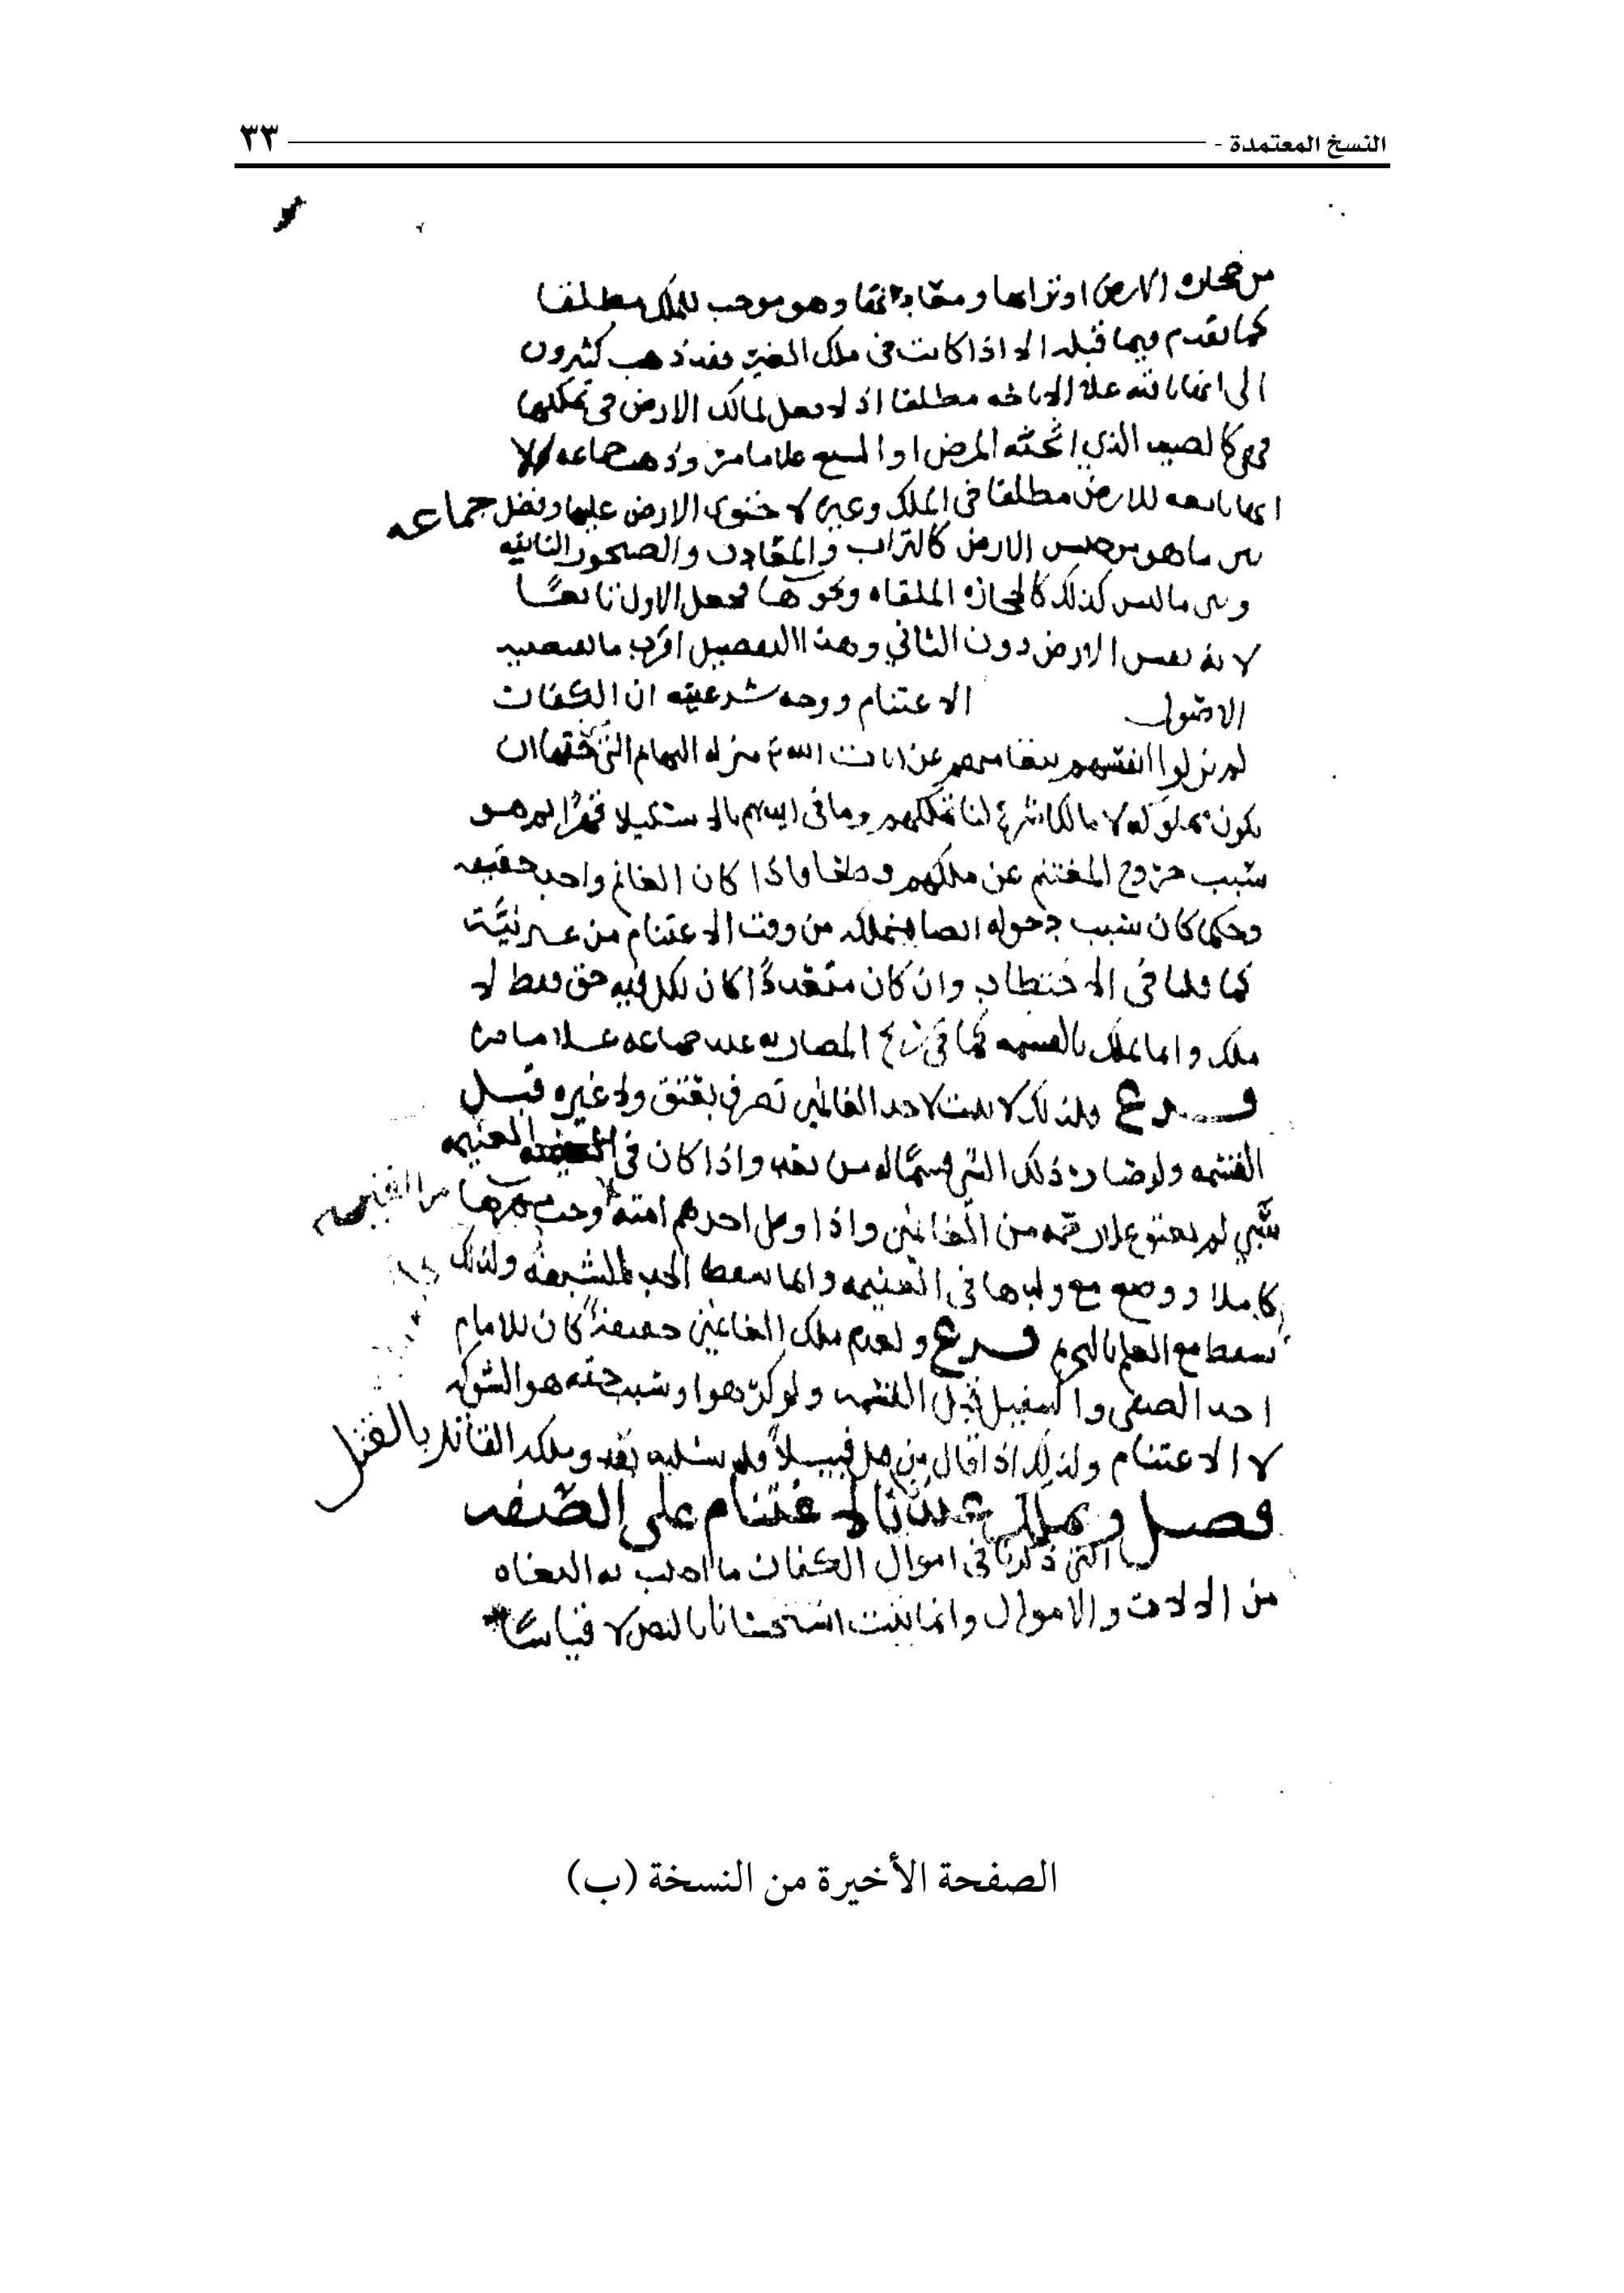 النسخ المعتمدة - ٣٣
من حجارة الارض او ترابها ومعادنها وهو موجب للملك مطلقا
كما تقدم فيما قبله الا اذا كانت في ملك الغير فقد ذهب كثيرون
الى انها باقية على الاباحه مطلقا اذ لا فعل لمالك الارض في تملكها
فهي كالصيد الذي اثخنه المرض او السبع على ما مر وذهب جماعه الى
انها تابعه للارض مطلقا في الملك وغيره لاحتوى الارض عليها وفصل جماعه
بين ما هو من جنس الارض كالتراب والمعادن والصخور الثابته
وبين ما ليس كذلك كالحجاره الملقاه ونحوها فجعل الاول تابعًا
لانه نفس الارض دون الثاني وهذا التفصيل اقرب ما تقتضيه
الاصول الاغتنام ووجه شرعيته ان الكفار
لم نزلوا انفسهم بتعاميهم عن ايات الله منزله البهايم التي حقها ان
يكون مملوكه لا مالكه شرع لنا تملكهم وما في ايديهم بالاستيلا قهرًا
سبب خروج المغتنم عن ملكهم مطلقا واذا كان الغانم واحد حقيقه
وحكما كان سبب دخوله ايضا فيملكه من وقت الاغتنام من غير نيَّة
كما قلنا في الاحتطاب وان كان متعددًا كان لكل فيه حق فقط لا
ملك وانما يملك بالقسمه كما في ربح المضاربه عند جماعه على ما مر
فرع ولذلك لا يثبت لاحد الغانمين تصرف بعتق ولا غيره قبل
القسمه ولو صار ذلك الشي قسمًا له من بعد واذا كان في الغنيمه
سَبْي لم يعتق على رحمه من الغانمين واذا وطي احدهم امته وجب مهرها من الغنيمه
كاملا ووضع مع ولدها في الغنيمه وانما سقط الحد للشبهة ولذلك
يسقط مع العلم بالتحريم فرع ولعدم ملك الغانمين حقيقةً كان للامام
اخذ الصفي والتنفيل قبل القسمه ولو كرهوا وسبب حقه هو الشوكه
لا الاغتنام ولذلك اذا قال من قتل قتيلاً فله سلبه نفذ وملكه القاتل بالقتل
فصل ويملك عندنا لا غتنام على الصفه
التي ذكرنا في اموال الكفار ما اجلب به البغاه
من الالات والاموال وانما ثبت استحسانا بالنص لا قياسًا
الصفحة الأخيرة من النسخة (ب)